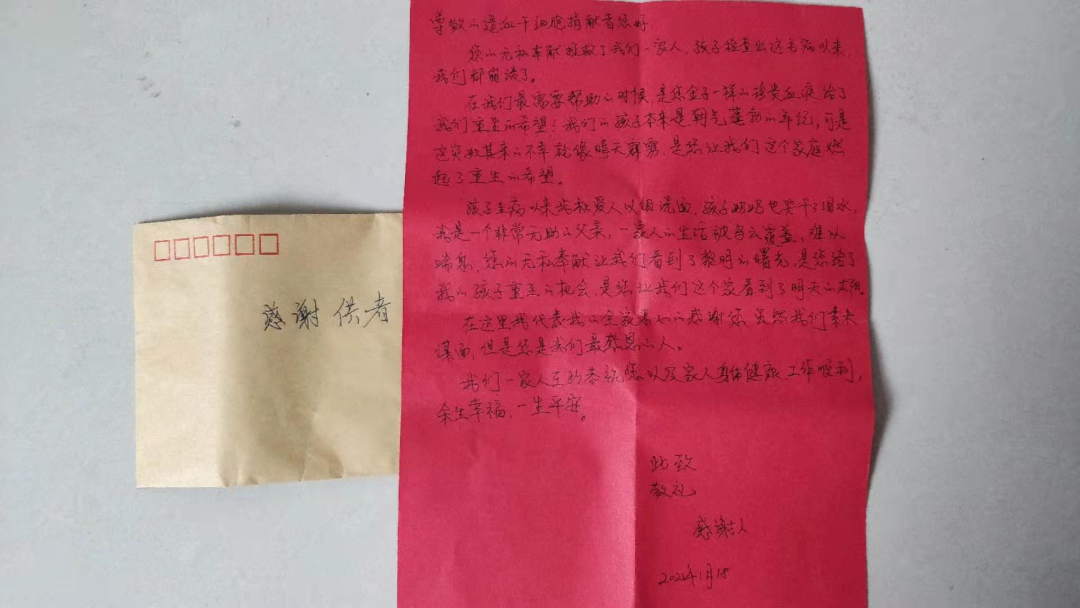 感谢供者
尊敬的造血干细胞捐献者您好
您的无私奉献拯救了我们一家人,孩子检查出这毛病以来
我们都崩溃了。
在我们最需要帮助的时候,是您金子一样的珍贵血液给了
我们重生的希望!我们的孩子本来是朝气蓬勃的年纪,可是
这突如其来的不幸就像晴天霹雳,是您让我们这个家庭燃
起了重生的希望。
孩子生病以来我和爱人以泪洗面,孩子妈妈也哭干了泪水,
我是一个非常无助的父亲,一家人的生活被乌云覆盖,难以
喘息,您的无私奉献让我们看到了黎明的曙光,是您给了
我的孩子重生的机会,是您让我们这个家看到了明天的太阳。
在这里我代表我的全家衷心的感谢您,虽然我们幸未
谋面,但是您是我们最感恩的人。
我们一家人在此恭祝您以及家人身体健康,工作顺利,
余生幸福,一生平安。
此致
敬礼
感谢人
1月18